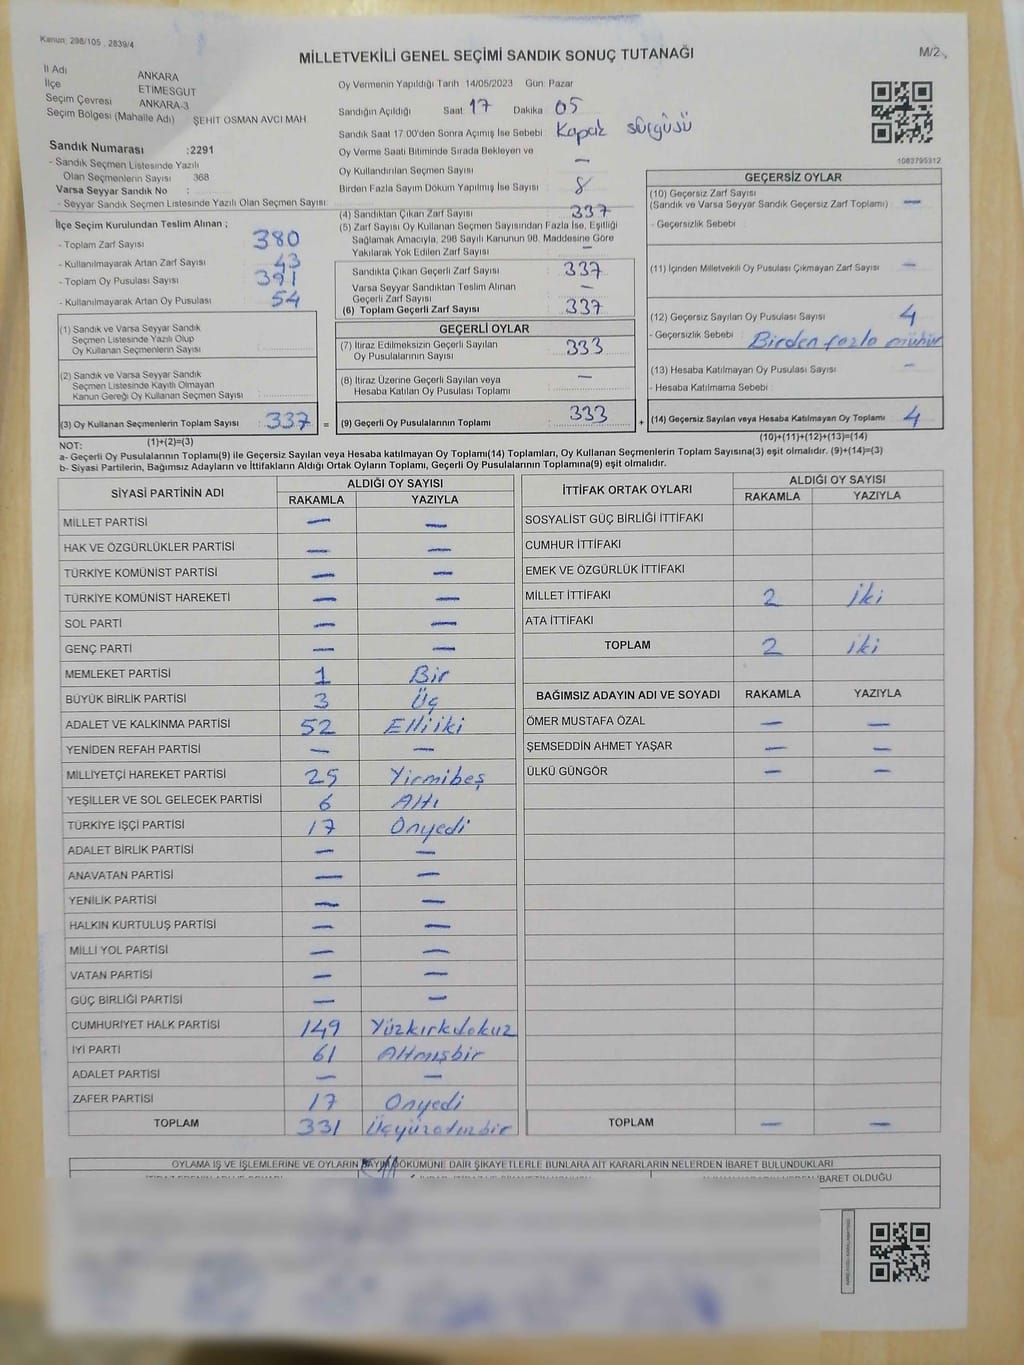 Kanun: 298/105 , 2839/4
MİLLETVEKİLİ GENEL SEÇİMİ SANDIK SONUÇ TUTANAĞI
M/2
İl Adı ANKARA
İlçe ETİMESGUT
Seçim Çevresi ANKARA-3
Seçim Bölgesi (Mahalle Adı) ŞEHİT OSMAN AVCI MAH
Oy Vermenin Yapıldığı Tarih 14/05/2023 Gün: Pazar
Sandığın Açıldığı Saat 17 Dakika 05
Sandık Saat 17:00'den Sonra Açımış İse Sebebi Kapak sürgüsü
Oy Verme Saati Bitiminde Sırada Bekleyen ve
Oy Kullandırılan Seçmen Sayısı —
Birden Fazla Sayım Döküm Yapılmış İse Sayısı 8
1083795312
Sandık Numarası :2291
- Sandık Seçmen Listesinde Yazılı
Olan Seçmenlerin Sayısı 368
Varsa Seyyar Sandık No :
- Seyyar Sandık Seçmen Listesinde Yazılı Olan Seçmen Sayısı:
İlçe Seçim Kurulundan Teslim Alınan ;
- Toplam Zarf Sayısı 380
- Kullanılmayarak Artan Zarf Sayısı 43
- Toplam Oy Pusulası Sayısı 391
- Kullanılmayarak Artan Oy Pusulası 54
(1) Sandık ve Varsa Seyyar Sandık
Seçmen Listesinde Yazılı Olup
Oy Kullanan Seçmenlerin Sayısı :
(2) Sandık ve Varsa Seyyar Sandık
Seçmen Listesinde Kayıtlı Olmayan
Kanun Gereği Oy Kullanan Seçmen Sayısı :
(3) Oy Kullanan Seçmenlerin Toplam Sayısı : 337 =
(1)+(2)=(3)
(4) Sandıktan Çıkan Zarf Sayısı 337
(5) Zarf Sayısı Oy Kullanan Seçmen Sayısından Fazla İse, Eşitliği
Sağlamak Amacıyla, 298 Sayılı Kanunun 98. Maddesine Göre
Yakılarak Yok Edilen Zarf Sayısı —
Sandıkta Çıkan Geçerli Zarf Sayısı 337
Varsa Seyyar Sandıktan Teslim Alınan
Geçerli Zarf Sayısı —
(6) Toplam Geçerli Zarf Sayısı 337
GEÇERLİ OYLAR
(7) İtiraz Edilmeksizin Geçerli Sayılan
Oy Pusulalarının Sayısı 333
(8) İtiraz Üzerine Geçerli Sayılan veya
Hesaba Katılan Oy Pusulası Toplamı —
(9) Geçerli Oy Pusulalarının Toplamı 333 +
GEÇERSİZ OYLAR
(10) Geçersiz Zarf Sayısı
(Sandık ve Varsa Seyyar Sandık Geçersiz Zarf Toplamı) —
- Geçersizlik Sebebi :
(11) İçinden Milletvekili Oy Pusulası Çıkmayan Zarf Sayısı —
(12) Geçersiz Sayılan Oy Pusulası Sayısı 4
- Geçersizlik Sebebi : Birden fazla mühür
(13) Hesaba Katılmayan Oy Pusulası Sayısı —
- Hesaba Katılmama Sebebi :
(14) Geçersiz Sayılan veya Hesaba Katılmayan Oy Toplamı : 4
(10)+(11)+(12)+(13)=(14)
NOT:
a- Geçerli Oy Pusulasının Toplamı(9) ile Geçersiz Sayılan veya Hesaba katılmayan Oy Toplamı(14) Toplamları, Oy Kullanan Seçmenlerin Toplam Sayısına(3) eşit olmalıdır. (9)+(14)=(3)
b- Siyasi Partilerin, Bağımsız Adayların ve İttifakların Aldığı Ortak Oyların Toplamı, Geçerli Oy Pusulalarının Toplamına(9) eşit olmalıdır.
SİYASİ PARTİNİN ADI ALDIĞI OY SAYISI
RAKAMLA YAZIYLA
MİLLET PARTİSİ — —
HAK VE ÖZGÜRLÜKLER PARTİSİ — —
TÜRKİYE KOMÜNİST PARTİSİ — —
TÜRKİYE KOMÜNİST HAREKETİ — —
SOL PARTİ — —
GENÇ PARTİ — —
MEMLEKET PARTİSİ 1 Bir
BÜYÜK BİRLİK PARTİSİ 3 Üç
ADALET VE KALKINMA PARTİSİ 52 Elliiki
YENİDEN REFAH PARTİSİ — —
MİLLİYETÇİ HAREKET PARTİSİ 25 Yirmibeş
YEŞİLLER VE SOL GELECEK PARTİSİ 6 Altı
TÜRKİYE İŞÇİ PARTİSİ 17 Onyedi
ADALET BİRLİK PARTİSİ — —
ANAVATAN PARTİSİ — —
YENİLİK PARTİSİ — —
HALKIN KURTULUŞ PARTİSİ — —
MİLLİ YOL PARTİSİ — —
VATAN PARTİSİ — —
GÜÇ BİRLİĞİ PARTİSİ — —
CUMHURİYET HALK PARTİSİ 149 Yüzkırkdokuz
İYİ PARTİ 61 Altmışbir
ADALET PARTİSİ — —
ZAFER PARTİSİ 17 Onyedi
TOPLAM 331 Üçyüzotuzbir
İTTİFAK ORTAK OYLARI ALDIĞI OY SAYISI
RAKAMLA YAZIYLA
SOSYALİST GÜÇ BİRLİĞİ İTTİFAKI
CUMHUR İTTİFAKI
EMEK VE ÖZGÜRLÜK İTTİFAKI
MİLLET İTTİFAKI 2 İki
ATA İTTİFAKI
TOPLAM 2 İki
BAĞIMSIZ ADAYIN ADI VE SOYADI RAKAMLA YAZIYLA
ÖMER MUSTAFA ÖZAL — —
ŞEMSEDDİN AHMET YAŞAR — —
ÜLKÜ GÜNGÖR — —
TOPLAM — —
OYLAMA İŞ VE İŞLEMLERİNE VE OYLARIN SAYIM DÖKÜMÜNE DAİR ŞİKAYETLERLE BUNLARA AİT KARARLARIN NELERDEN İBARET BULUNDUKLARI
İBARET OLDUĞU